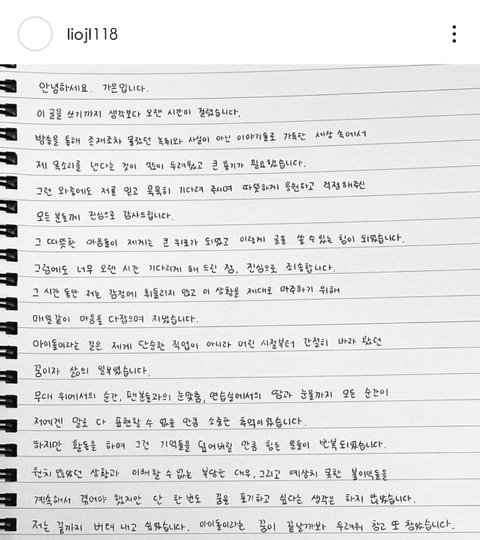 liojl118
안녕하세요. 가은입니다.
이 글을 쓰기까지 생각보다 오랜 시간이 걸렸습니다.
방송을 통해 존재조차 몰랐던 녹취와 사실이 아닌 이야기들로 가득한 세상 속에서
제 목소리를 낸다는 것이 많이 두려웠고 큰 용기가 필요했습니다.
그런 와중에도 저를 믿고 묵묵히 기다려 주시며 따뜻하게 응원하고 걱정해주신
모든 분들께 진심으로 감사드립니다.
그 따뜻한 마음들이 제게는 큰 위로가 되었고 이렇게 글을 쓸 수 있는 힘이 되었습니다.
그럼에도 너무 오랜 시간 기다리게 해 드린 점, 진심으로 죄송합니다.
그 시간 동안 저는 감정에 휘둘리지 않고 이 상황을 제대로 마주하기 위해
매일같이 마음을 다잡으며 지냈습니다.
아이돌이라는 길은 제게 단순한 직업이 아니라 어린 시절부터 간절히 바라 왔던
꿈이자 삶의 일부였습니다.
무대 위에서의 순간, 팬분들과의 눈맞춤, 연습실에서의 땀과 눈물까지 모든 순간이
저에겐 말로 다 표현할 수 없을 만큼 소중한 추억이었습니다.
하지만 활동을 하며 그런 기억들을 덮어버릴 만큼 힘든 일들이 반복되었습니다.
원치 않았던 상황과 이해할 수 없는 부당한 대우, 그리고 예상치 못한 불이익들을
계속해서 겪어야 했지만 단 한 번도 꿈을 포기하고 싶다는 생각은 하지 않았습니다.
저는 끝까지 버텨 내고 싶었습니다. 아이돌이라는 꿈이 끝날까봐 두려워 참고 또 참았습니다.